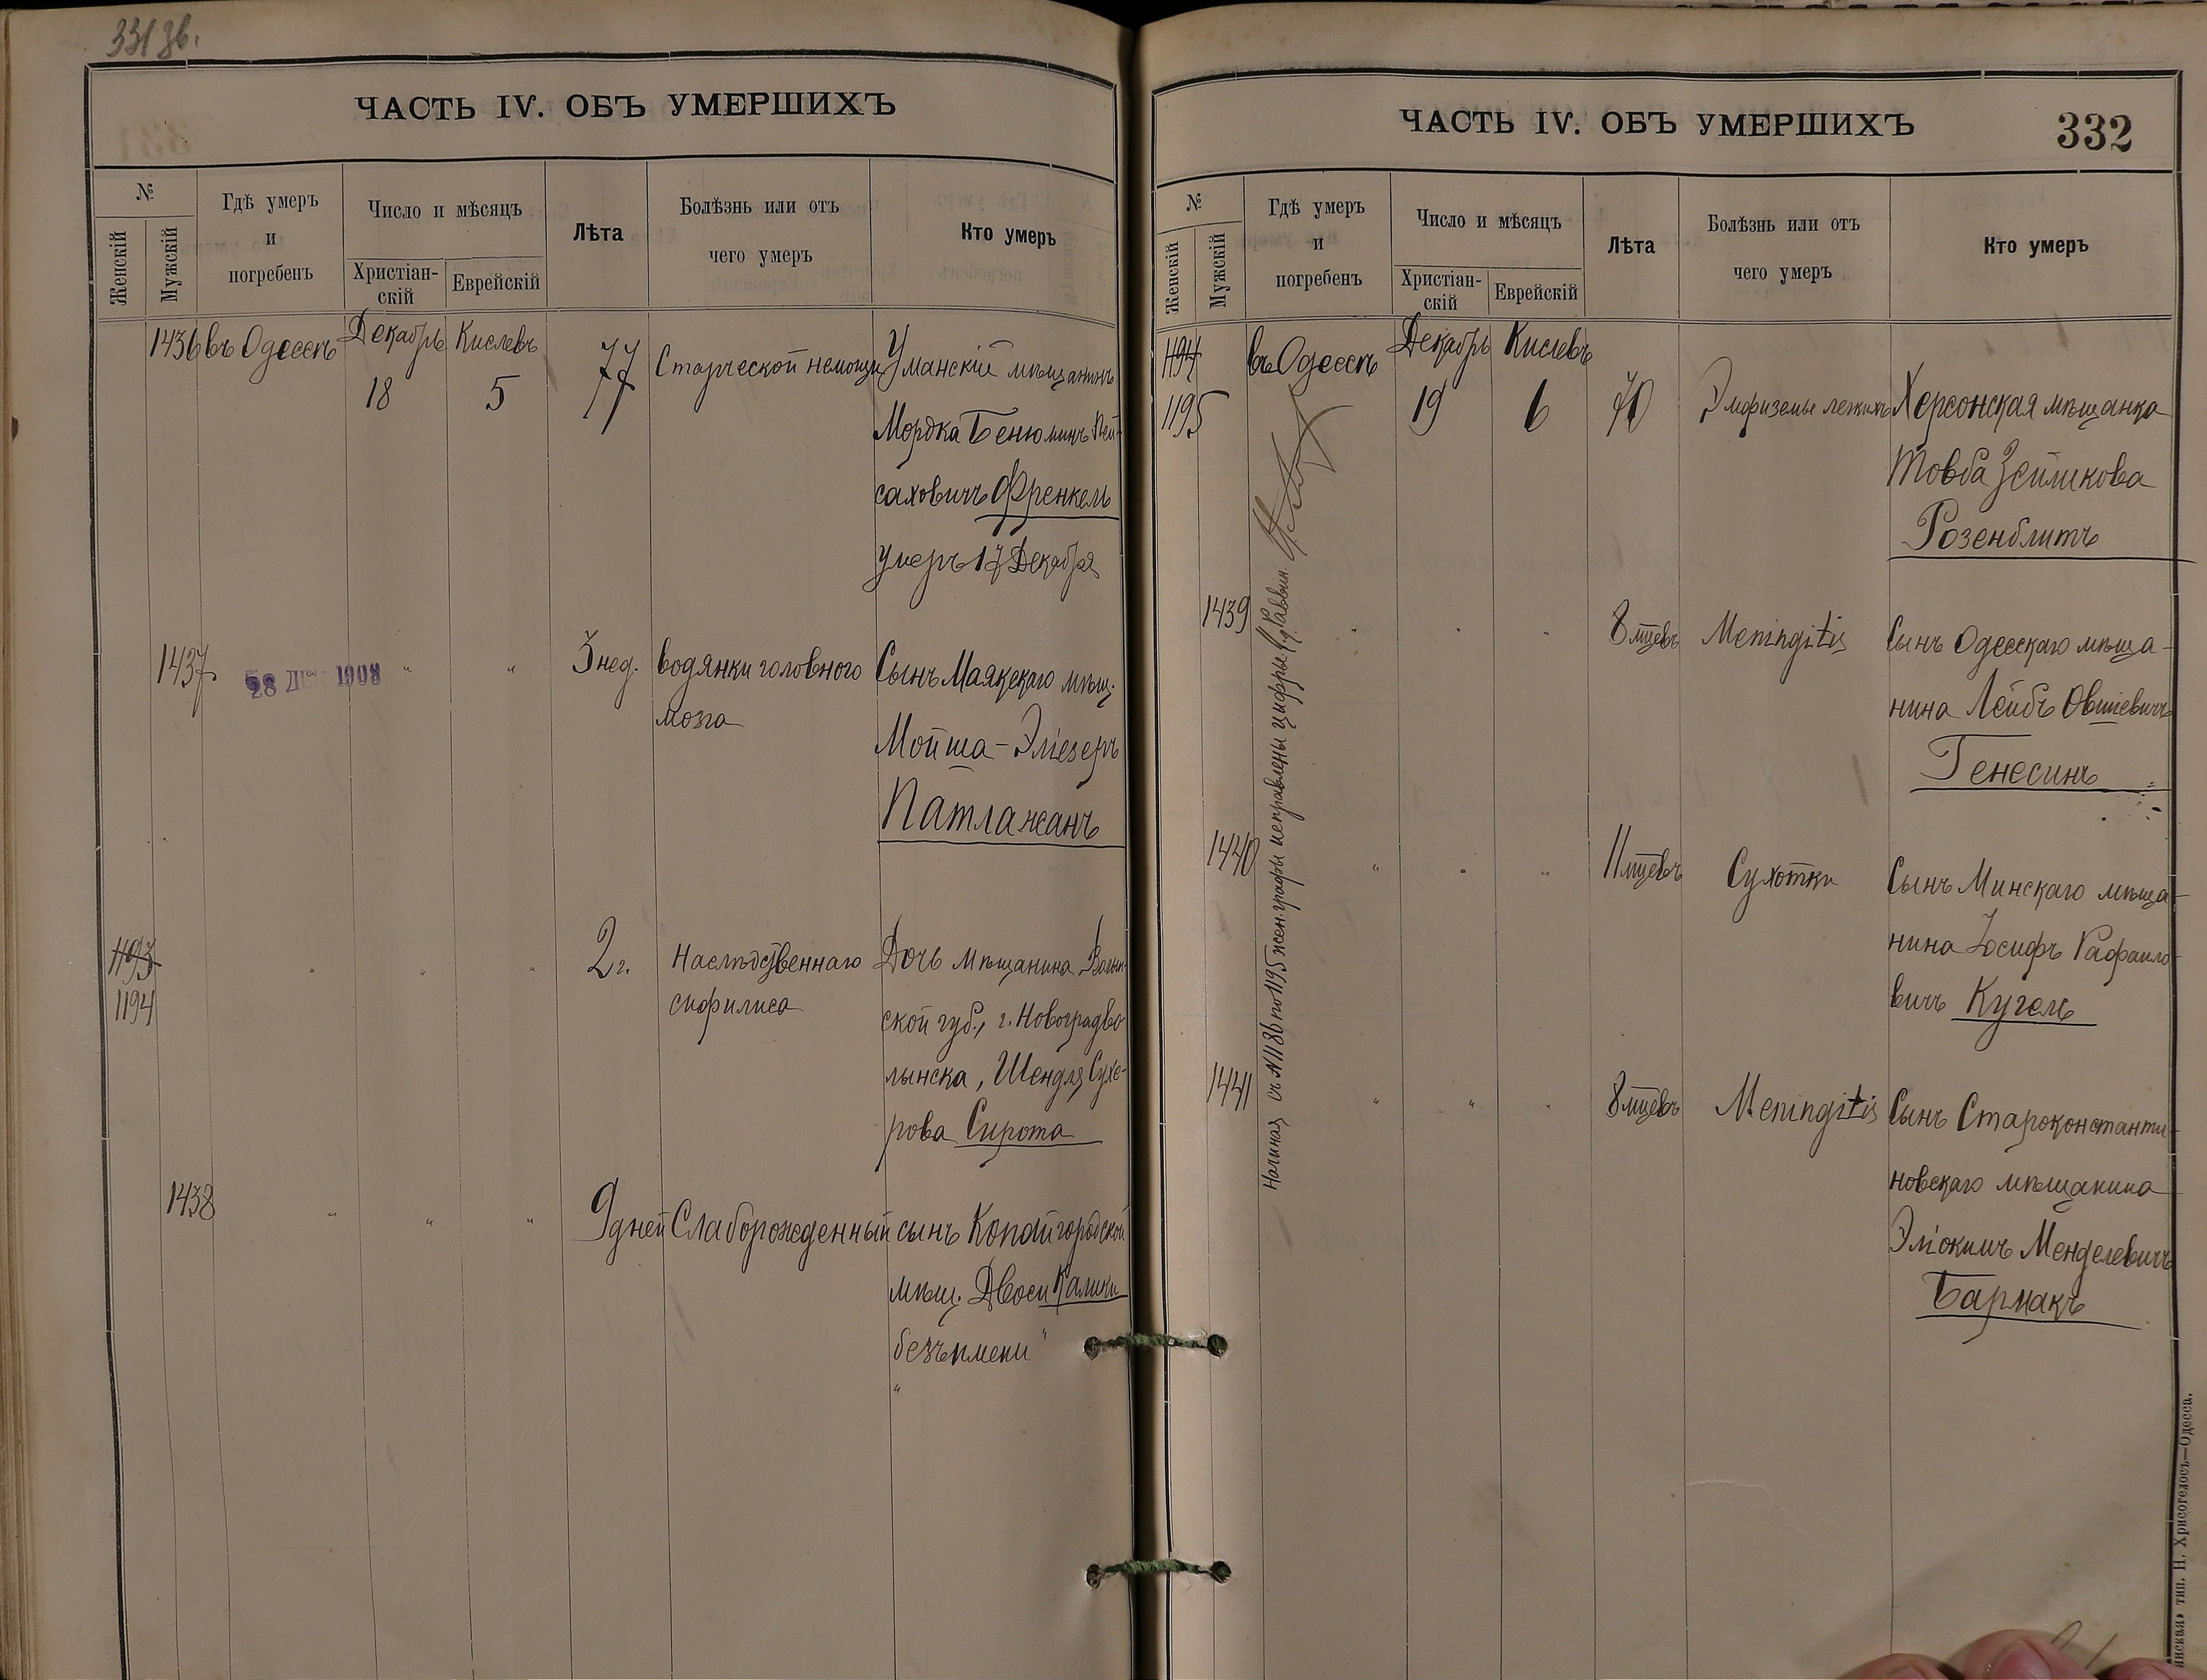 331 зв.
ЧАСТЬ IV. ОБЪ УМЕРШИХЪ
№
Женскій
Мужскій
Гдѣ умеръ
и
погребенъ
Число и мѣсяцъ
Христіан-
скій
Еврейскій
Лѣта
Болѣзнь или отъ
чего умеръ
Кто умеръ
1436 въ Одессѣ Декабрь Кислевъ 77 Старческой немощи Уманскій мѣщанинъ
18 5 Мордка Бенюминъ Пей-
саховичъ Френкель
умеръ 17 Декабря
1437 28 ДЕК 1908 " " 3 нед. водянки головного Сынъ Маякскаго мѣщ.
мозга Мойша-Эліезеръ
Патлажанъ
1193 " " " 2 г. Наслѣдственнаго Дочь мѣщанина Волын-
1194 сифилиса ской губ., г. Новоградво-
лынска, Шендля Сухе-
рова Сирота
1438 " " " 9 дней Слаборожденный сынъ Копайгородской
мѣщ. Двоси Калики
безъ имени "
"
ЧАСТЬ IV. ОБЪ УМЕРШИХЪ
332
№
Женскій
Мужскій
Гдѣ умеръ
и
погребенъ
Число и мѣсяцъ
Христіан-
скій
Еврейскій
Лѣта
Болѣзнь или отъ
чего умеръ
Кто умеръ
1194 въ Одессѣ Декабрь Кислевъ
1195 19 6 70 Эмфиземы легкихъ Херсонская мѣщанка
Товба Зейликова
Розенблитъ
1439 " " " 8 мцевъ Meningitis Сынъ Одесскаго мѣща-
нина Лейбъ Овшіевичъ
Генесинъ
1440 " " " 11 мцевъ Сухотки Сынъ Минскаго мѣща-
нина Іосифъ Рафаило-
вичъ Кугель
1441 " " " 8 мцевъ Meningitis Сынъ Староконстанти-
новскаго мѣщанина
Эліокимъ Менделевичъ
Бармакъ
Начиная съ №1186 по 1195 жен. графы исправлены цифры. Раввин.
тип. Н. Хрисогелосъ—Одесса.